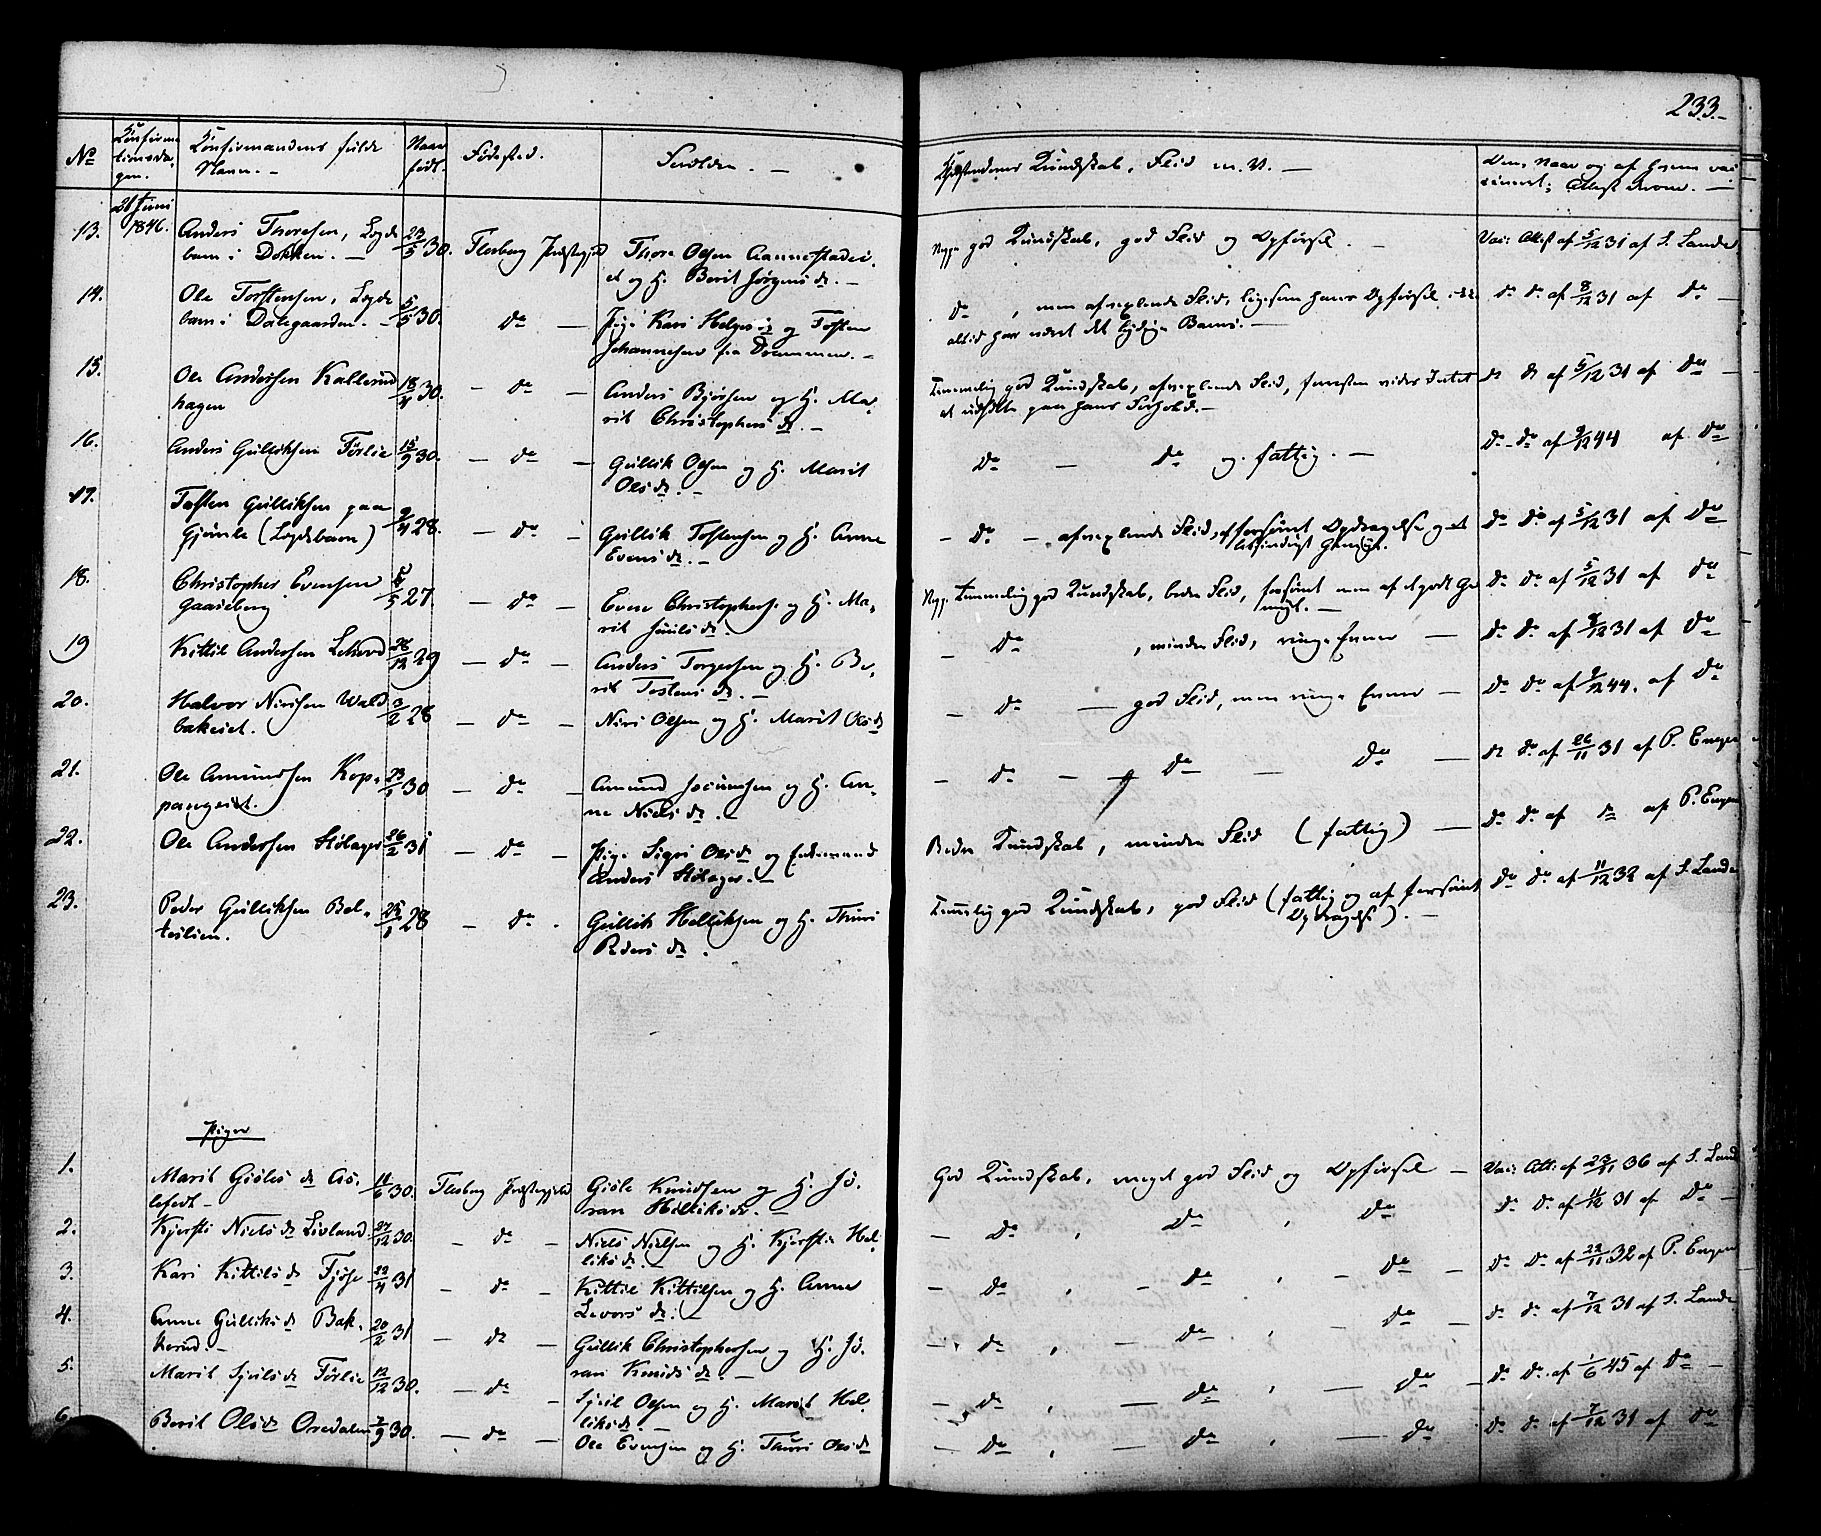 233.-
No
Confirmationsdagen.
Confirmandens fulde Navn. -
Naar født.
Fødested.
Forældre. -
Kundskab, Flid m. V. -
Vacc. Naar og af hvem vaccineret; Attest derom. -
28 Juni 1846.
13. Anders Thoresen, Lægdbarn i Dokken. - 23/5 30. Flesberg Præstegjeld Thore Olsen Aannestadeiet og H. Berit Jørgensdr. -
god Kundskab, god Flid og Opførsel. - Vac: Attest af 5/12 31 af S. Lande
14. Ole Torstensen, Lægdbarn i Dalegaarden. - 5/5 30. do - Pige Kari Helgesdr og Tosten Johannesen fra Drammen. -
do , men afvexlende Flid, ligesom hans Opførsel ikke altid har været det lydige Barns. - do do af 8/12 31 af do -
15. Ole Andersen Kallerudhagen 18/4 30. - do - Anders Bjørsen og H. Marit Christophersdr. -
Temmelig god Kundskab, afvexlende Flid, forresten vides Intet at udsætte paa hans Forhold. - do do af 5/12 31 af do -
16. Anders Gulliksen Førlie 15/9 30. - do - Gullik Olsen og H. Marit Olsdr. -
do - do og fattig. - do - do af 9/12 44 af do
17. Tosten Gulliksen paa Gjønle (Lægdsbarn) 9/4 28. - do - Gullik Tostensen og H. Anne Evensdr. -
- do - , afvexlende Flid, af forsømt Opdragelse og et do do af 5/12 31 af do
18. Christopher Evensen Gaaseberg 5/5 27. - do - Even Christophers. og H. Marit Juulsdr.
Temmelig god Kundskab, bedre Flid, forsømt men af et godt Gemyt. - do do af 5/12 31 af do
19 Kittil Andersen Lekvod 28/12 29 - do - Anders Torgersen og H. Berit Tostensdr. -
- do , mindre Flid, ringe Evner - do do af 9/12 31 af do
20. Halvor Nirisen Waldbakeiet. 3/2 28 - do - Niri Olsen og H. Marit Olsdr
- do - god Flid, men ringe Evner - do do af 9/12 44. af do
21. Ole Amundsen Koppangeiet. 23/1 30 - do - Amund Jocumsen og H. Anne Nielsdr. -
- do - - do - do - do do af 26/11 31 af P. Engen
22. Ole Andersen Stølager 26/2 31 - do - Pige Sigri Olsdr og Enkemand Anders Stølager. -
Bedre Kundskab, mindre Flid (fattig) - do do af do af P. Engen
23. Peder Gulliksen Belteslien. 25/1 28 - do . Gullik Helliksen og H. Thuri Pedersdr.
Temmelig god Kundskab, god Flid (fattig og af forsømt Opdragelse). - do do af 11/12 32 af S. Lande
Piger
1. Marit Gislesdr Aaslefedt - 11/6 30. Flesberg Præstegjeld Gisle Knudsen og H. Jøran Helliksdr. -
God Kundskab, meget god Flid og Opførsel - Vac: Att: af 23/11 36 af S. Lande
2. Kjersti Nielsdr Livland. 27/12 30. - do - Niels Nielsen og H. Kjersti Helliksdr. -
- do , do , do do do af 11/12 31 af do -
3. Kari Kittilsdr Fjøse 22/4 31 - do - Kittil Kittilsen og H. Anne Levorsdr. -
- do , - do , - do - do do af 22/11 32 af P. Engen
4. Anne Gulliksdr Bakkerud. - 20/2 31 - do - Gullik Christophersen og H. Jøran Knudsdr. -
- do , - do , - do - do do af 7/12 31 af S. Lande
5. Marit Sjulsdr Førlie 12/12 30. - do - Sjul Olsen og H. Marit Helliksdr. -
- do , - do , - do - do do af 1/6 45 af do -
6. Berit Olsdr Overdalen 7/9 30. - do - Ole Evensen og H. Thuri Olsdr
- do , - do , - do do do af 7/12 31 af do